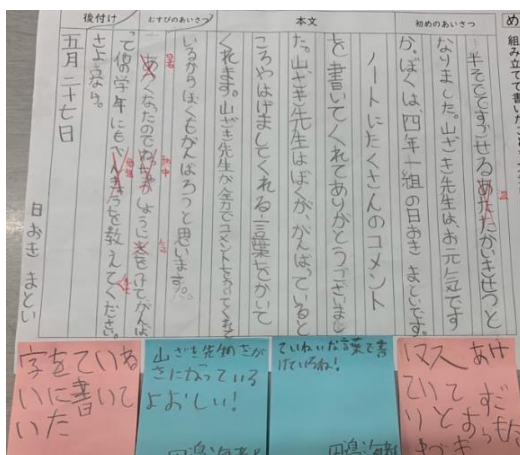 め
組み立てて書いた
初めのあいさつ
本文
むすびのあいさつ
後付け
半そでですごせるあたたかいきせつと
なりました。山ざき先生は、お元気です
か。ぼくは、四年一組の日おきまといです。
ノートにたくさんのコメント
を書いてくれてありがとうございまし
た。山ざき先生はぼくが、がんばっていると
ころやはげましてくれる言葉をかいて
くれます。山ざき先生が全力でコメントをかいてくれて
いるからぼくもがんばろうと思います。
暑
あつくなったのでねっちゅうしょうに気をつけてがんば
熱中
って他の学年にもべんきょうを教えてください。
勉強
さようなら。
五月二十七日
日おき まとい
字をていね
いに書いて
いた
山ざき先生
さになっている
よおしい!
ていねいな言葉で書
けているね!